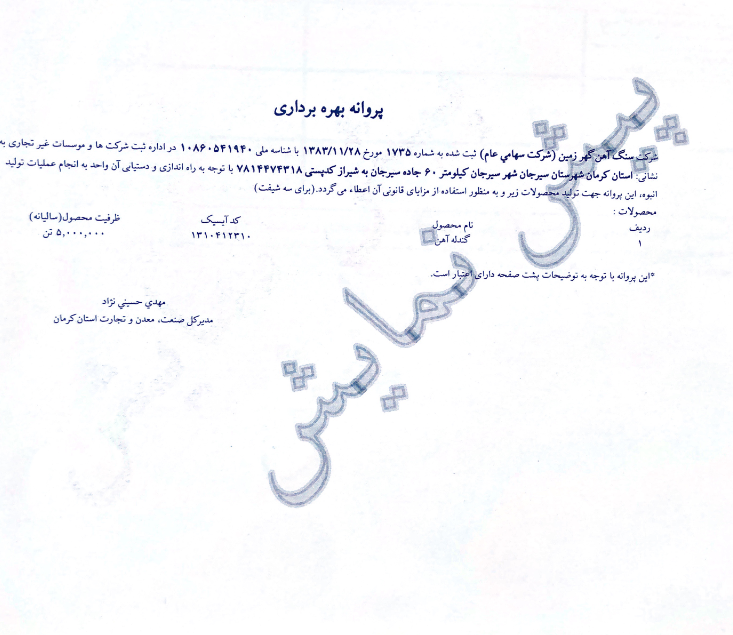 پروانه بهره برداری
شرکت سنگ آهن گهر زمین (شرکت سهامي عام) ثبت شده به شماره ۱۷۳۵ مورخ ۱۳۸۳/۱۱/۲۸ با شناسه ملی ۱۰۸۶۰۵۴۱۹۴۰ در اداره ثبت شرکت ها و موسسات غیر تجاری به
نشانی: استان کرمان شهرستان سیرجان شهر سیرجان کیلومتر ۶۰ جاده سیرجان به شیراز کدپستی ۷۸۱۴۴۷۴۳۱۸ با توجه به راه اندازی و دستیابی آن واحد به انجام عملیات تولید
انبوه، این پروانه جهت تولید محصولات زیر و به منظور استفاده از مزایای قانونی آن اعطاء می‌گردد.(برای سه شیفت)
محصولات :
ردیف نام محصول کد آیسیک ظرفیت محصول(سالیانه)
۱ گندله آهن ۱۳۱۰۴۱۲۳۱۰ ۵,۰۰۰,۰۰۰ تن
*این پروانه با توجه به توضیحات پشت صفحه دارای اعتبار است.
مهدي حسيني نژاد
مدیرکل صنعت، معدن و تجارت استان کرمان
پیش نمایش